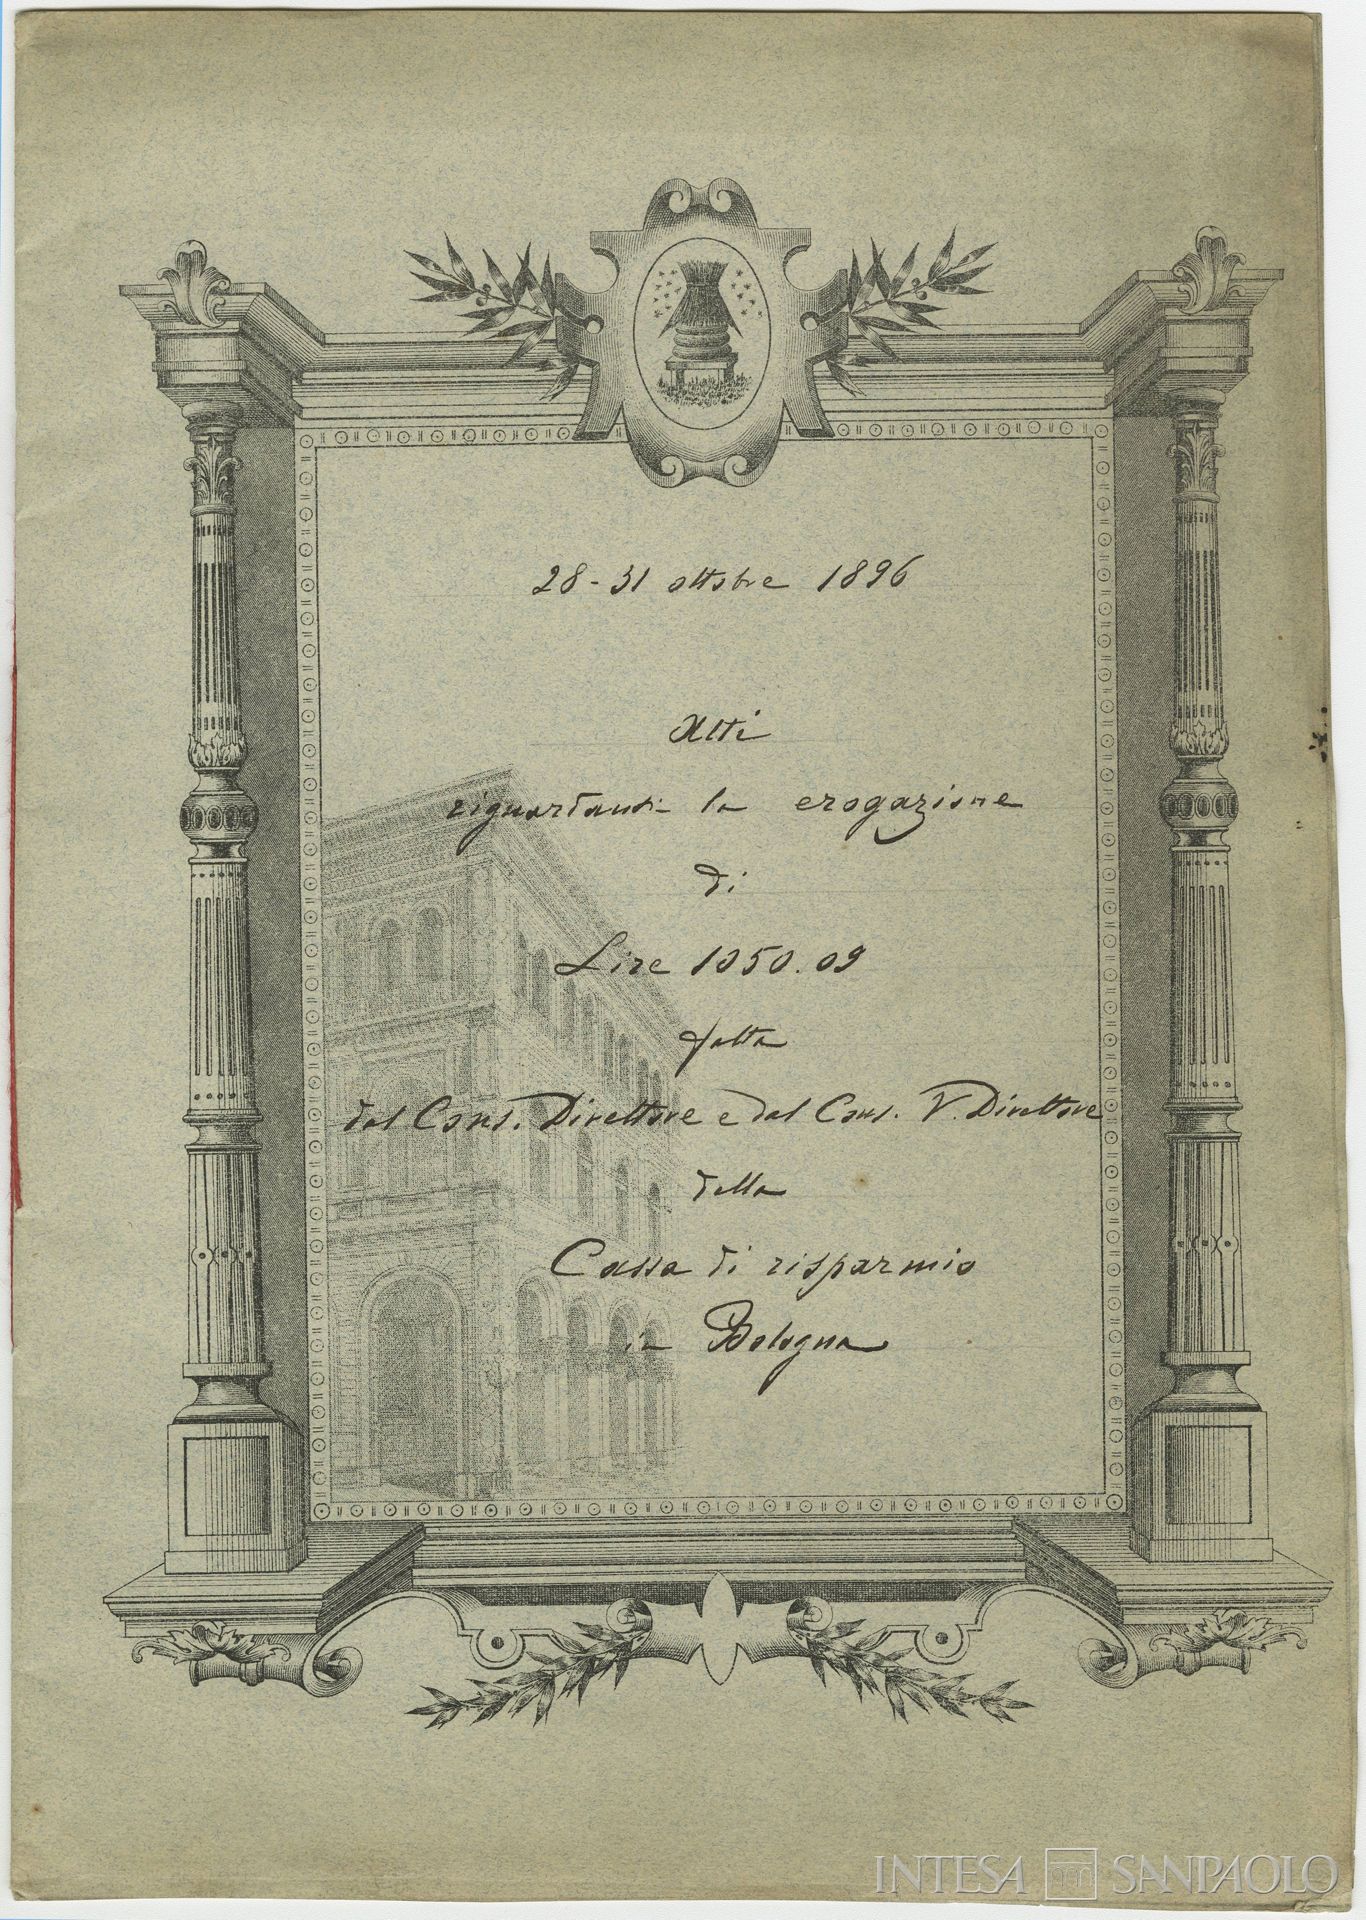 28-31 ottobre 1896
Atti
riguardanti la erogazione
di
Lire 1050.09
fatta
dal Cons. Direttore e dal Cons. V. Direttore
della
Cassa di risparmio
in Bologna
INTESA SANPAOLO